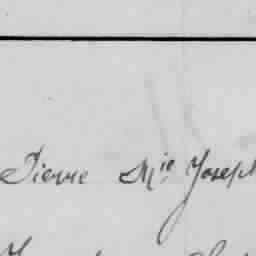 Pierre Mie Joseph